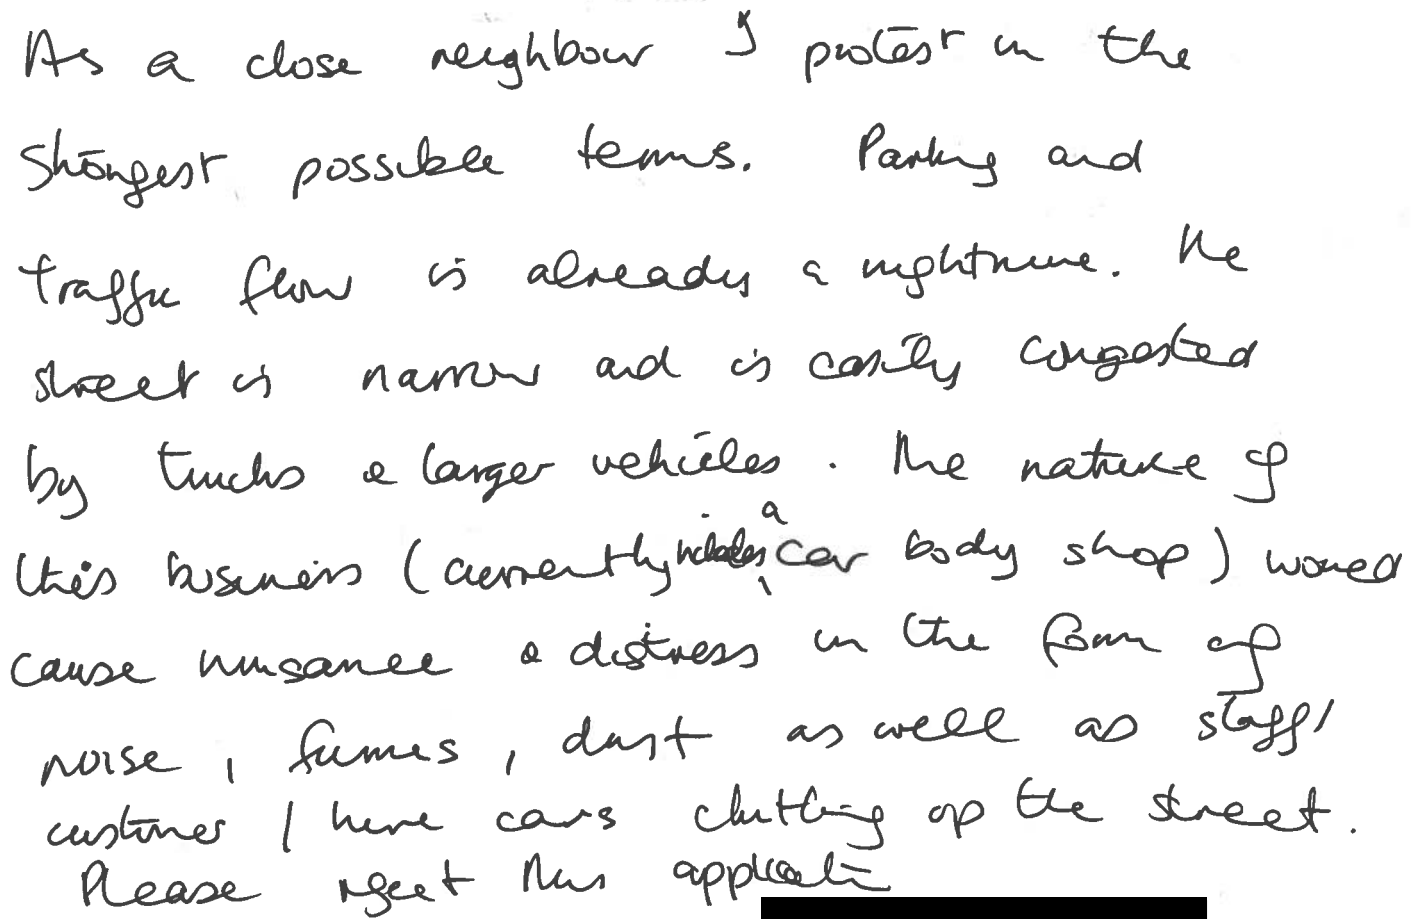 As a close neighbour I protest in the
strongest possible terms. Parking and
traffic flow is already a nightmare. The
street is narrow and is easily congested
by trucks & larger vehicles. The nature of
this business (currently includes a car body shop) would
cause nuisance & distress in the form of
noise, fumes, dust as well as staff/
customer / hire cars clutting up the street.
Please reject this application